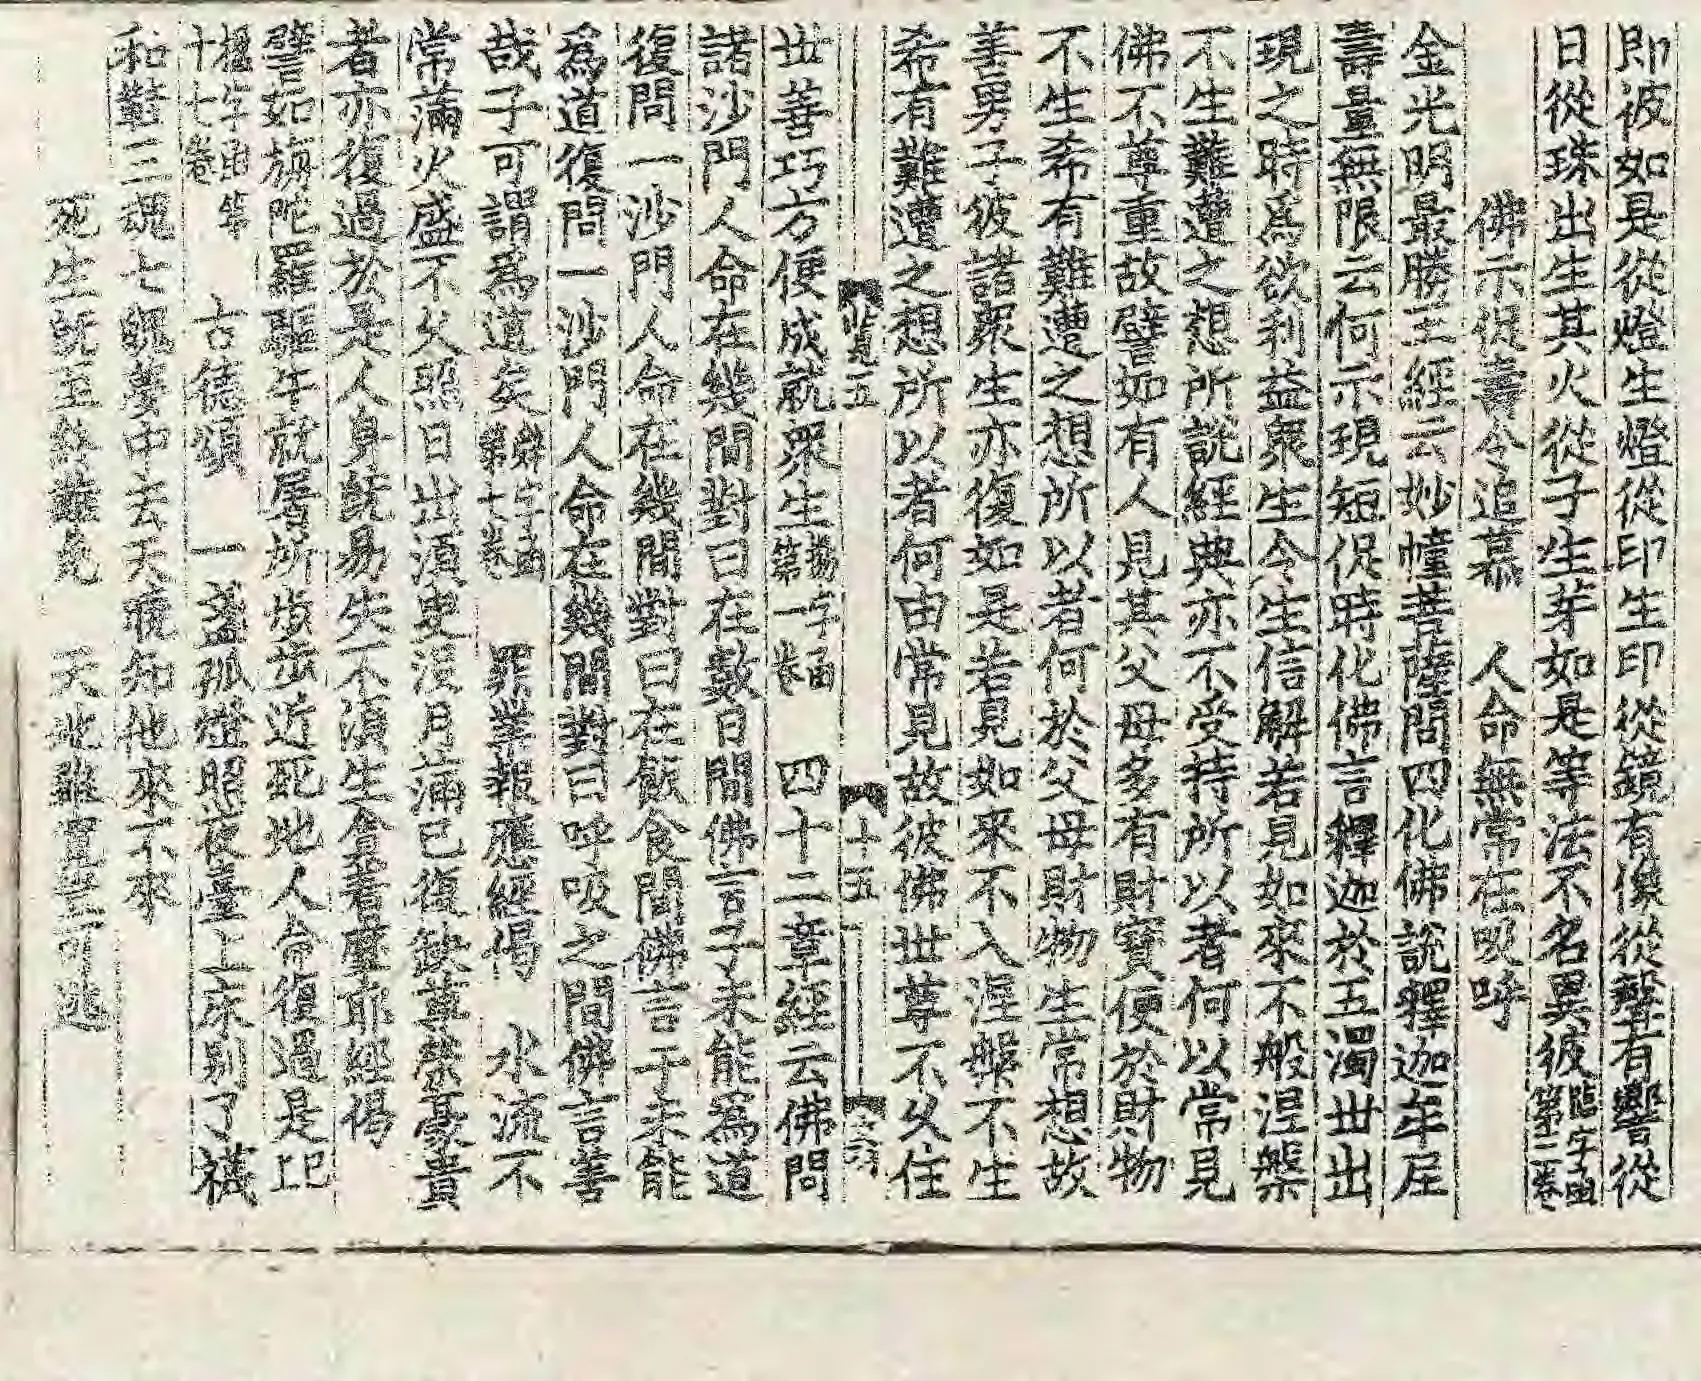 即彼如是從燈生燈從印生印從鏡有像從聲有響從
日從珠出生其火從子生芽如是等法不名異彼臨字函第二卷
佛示促壽令追慕　人命無常在吸呼
金光明最勝王經云妙幢菩薩問四化佛說釋迦牟尼
壽量無限云何示現短促時化佛言釋迦於五濁世出
現之時爲欲利益衆生令生信解若見如來不般涅槃
不生難遭之想所說經典亦不受持所以者何以常見
佛不尊重故譬如有人見其父母多有財寶便於財物
不生希有難遭之想所以者何於父母財物生常想故
善男子彼諸衆生亦復如是若見如來不入涅槃不生
希有難遭之想所以者何由常見故彼佛世尊不久住
五　十五
世善巧方便成就衆生字函第一卷　四十二章經云佛問
諸沙門人命在幾間對曰在數日間佛言子未能爲道
復問一沙門人命在幾間對曰在飲食間佛言子未能
爲道復問一沙門人命在幾間對曰呼吸之間佛言善
哉子可謂爲道矣字函第七卷　罪業報應經偈　水流不
常滿火盛不久照日出須臾沒月滿已復缺尊榮豪貴
者亦復過於是人身既易失不須生貪著摩耶經偈
譬如旃陀羅驅牛就屠所步步近死地人命復過是上
字函第十七卷　古德頌　一盞孤燈照夜臺上床別了襪
和鞋三魂七魄夢中去天曉知他來不來
死生既至終難免　天地雖寬豈可逃